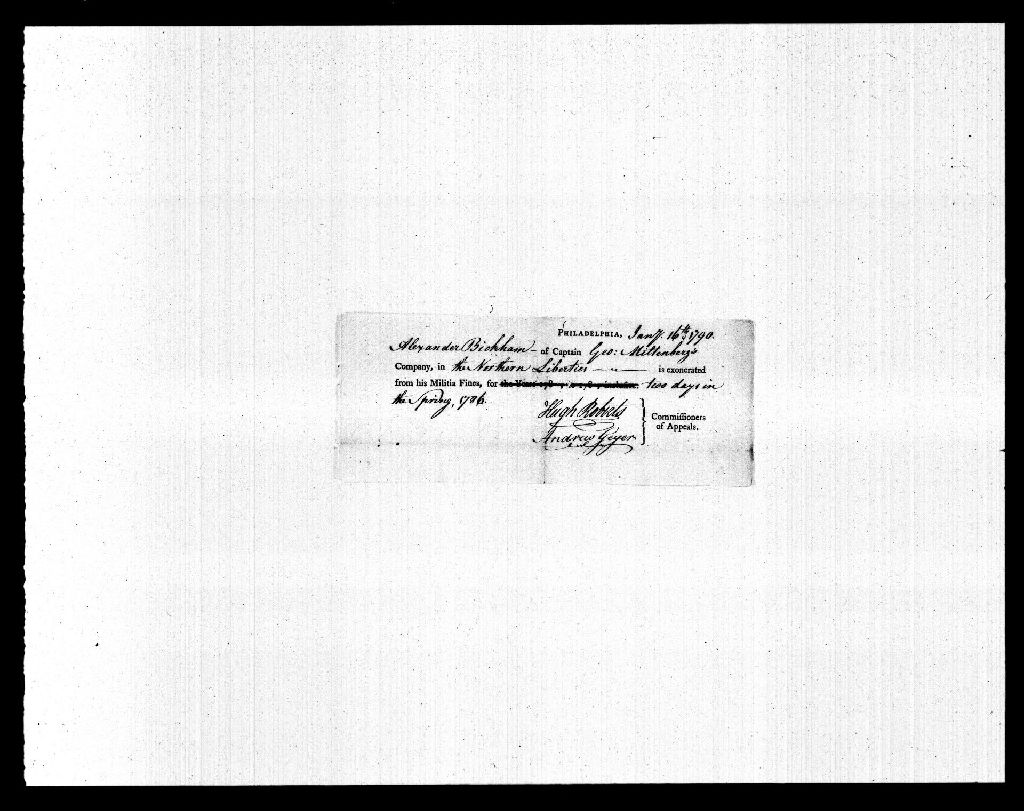 PHILADELPHIA, Jany. 16th 1790.
Alexander Bickham - of Captain Geo: Miltenberg's
Company, in the Northern Liberties — " — is exonerated
from his Militia Fines, for two days in
the Spring, 1786.
Hugh Roberts
Andrew Geyer
Commissioners
of Appeals.